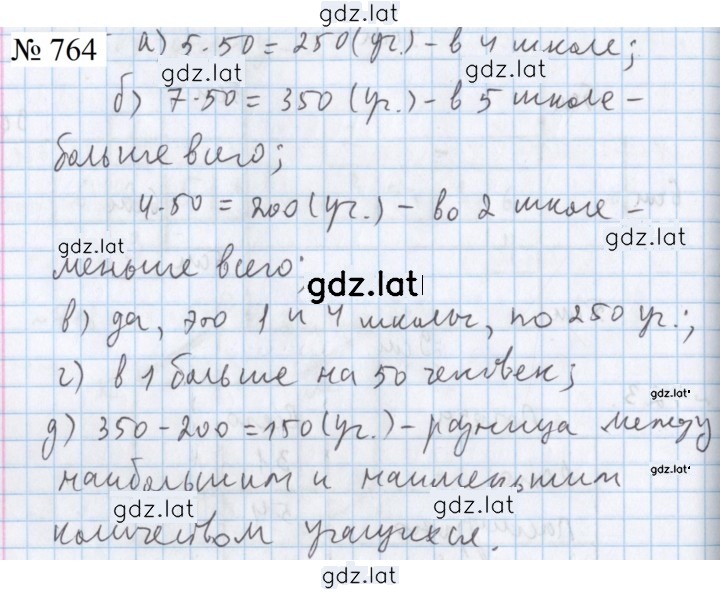 gdz.lat
№ 764 а) 5·50 = 250 (уч.) - в 4 школе;
gdz.lat
gdz.lat
б) 7·50 = 350 (уч.) - в 5 школе -
больше всего;
4·50 = 200 (уч.) - во 2 школе -
gdz.lat
gdz.lat
меньше всего;
gdz.lat
в) да, это 1 и 4 школы, по 250 уч.;
г) в 1 больше на 50 человек;
gdz.lat
д) 350 - 200 = 150 (уч.) - разница между
наибольшим и наименьшим
gdz.lat
gdz.lat
gdz.lat
количеством учащихся.
gdz.lat